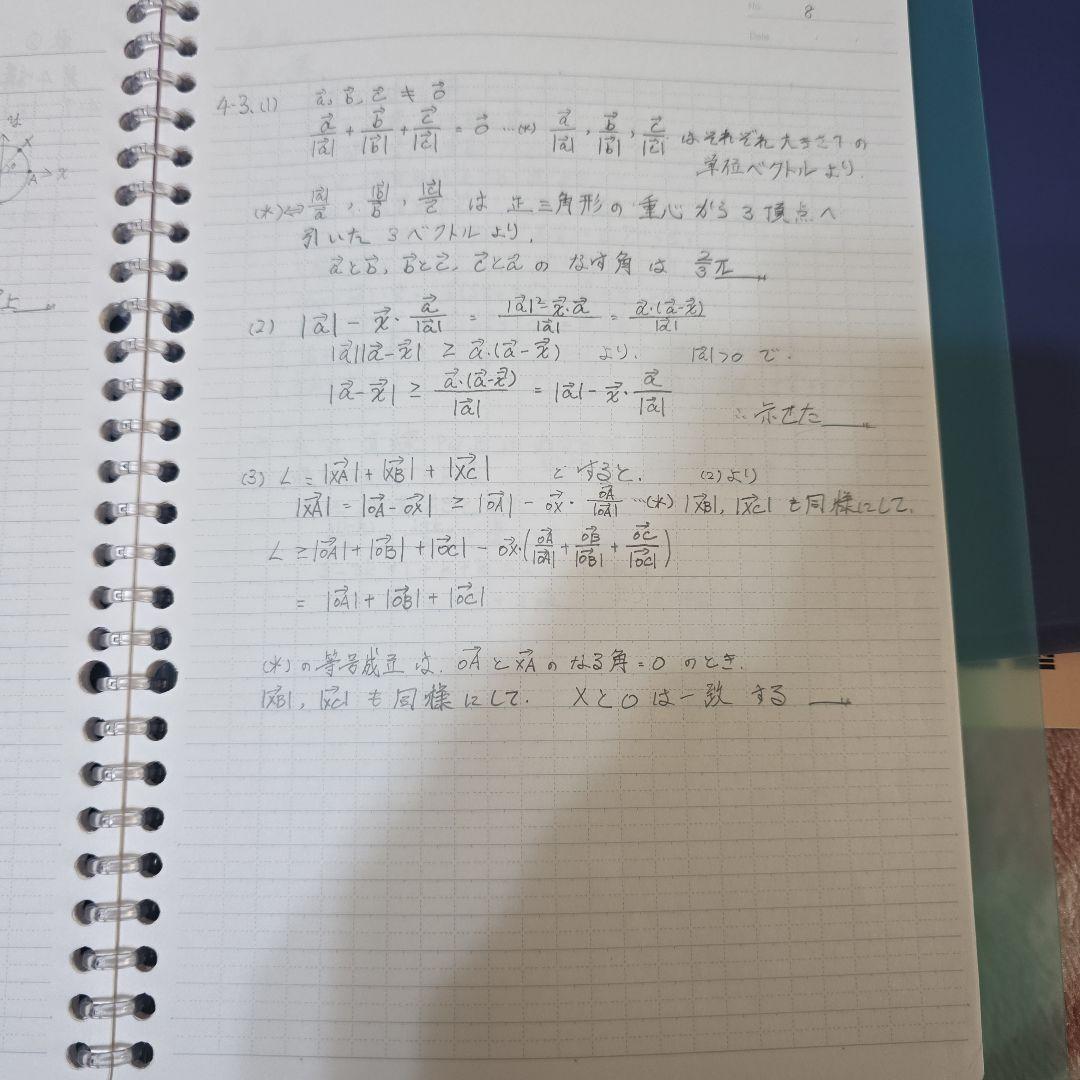 No. 8
Date
4-3. (1) a⃗, b⃗, c⃗ ≠ 0⃗
a⃗/|a⃗| + b⃗/|b⃗| + c⃗/|c⃗| = 0⃗ …(*) a⃗/|a⃗|, b⃗/|b⃗|, c⃗/|c⃗| はそれぞれ大きさ1の
単位ベクトルより.
(*)⇔ |a⃗|/a⃗, |b⃗|/b⃗, |c⃗|/c⃗ は 正三角形の重心から3頂点へ
引いた 3ベクトルより.
a⃗とb⃗, b⃗とc⃗, c⃗とa⃗ の なす角は 2/3π
(2) |a⃗| - x⃗・a⃗/|a⃗| = (|a⃗|²-x⃗・a⃗)/|a⃗| = a⃗・(a⃗-x⃗)/|a⃗|
|a⃗||a⃗-x⃗| ≥ a⃗・(a⃗-x⃗) より. |a⃗|>0 で.
|a⃗-x⃗| ≥ a⃗・(a⃗-x⃗)/|a⃗| = |a⃗| - x⃗・a⃗/|a⃗|
∴ 示せた
(3) L = |XA⃗| + |XB⃗| + |XC⃗| とすると. (2)より
|XA⃗| = |OA⃗ - OX⃗| ≥ |OA⃗| - OX⃗・OA⃗/|OA⃗| …(*) |XB⃗|, |XC⃗| も同様にして.
L ≥ |OA⃗| + |OB⃗| + |OC⃗| - OX⃗・(OA⃗/|OA⃗| + OB⃗/|OB⃗| + OC⃗/|OC⃗|)
= |OA⃗| + |OB⃗| + |OC⃗|
(*)の等号成立は. OA⃗とXA⃗のなる角=0 のとき.
|XB⃗|, |XC⃗| も同様にして. XとOは一致する